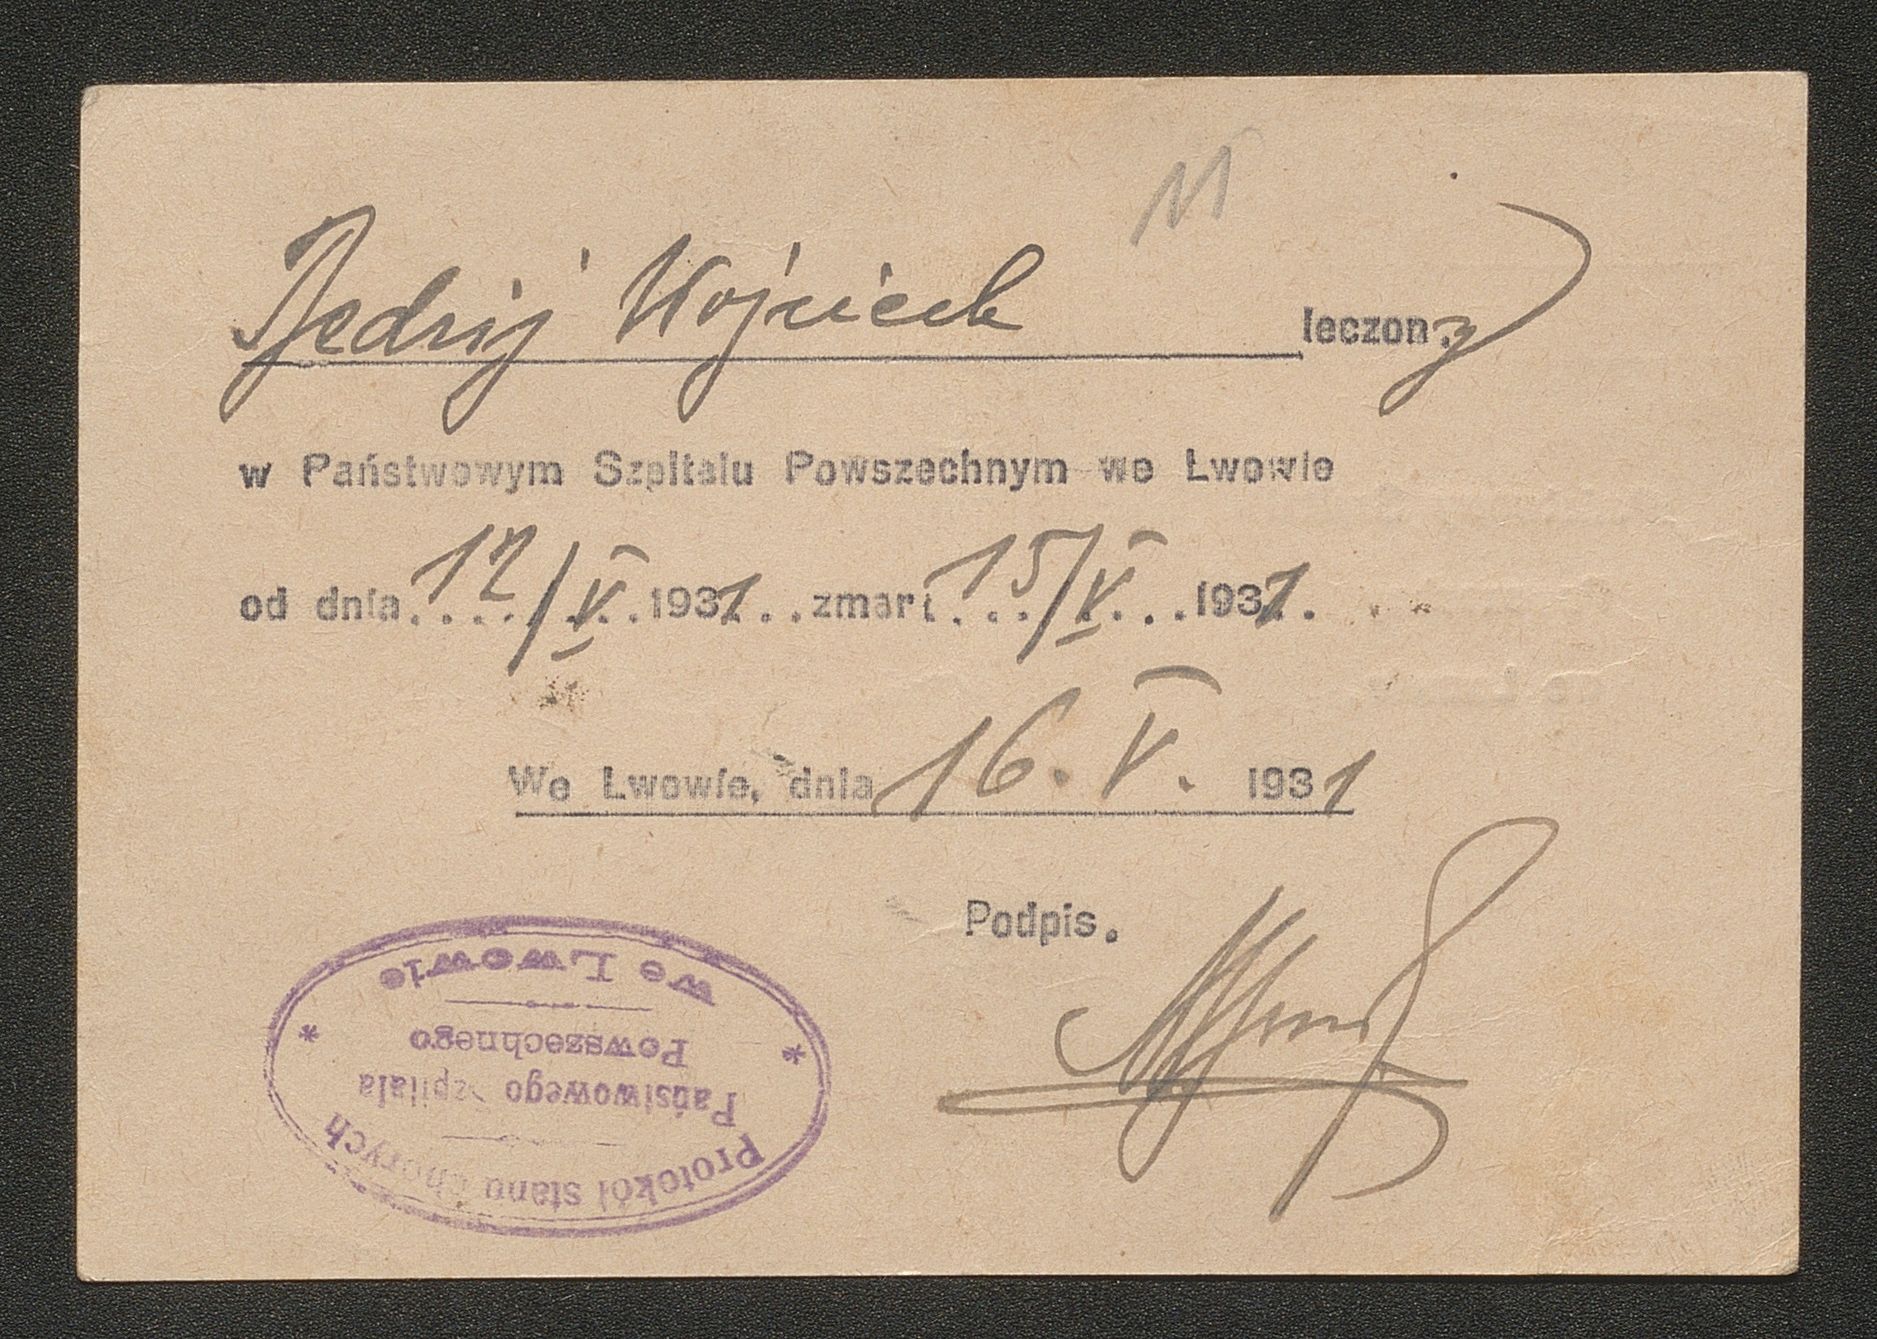 11
Jedrij Wojciech leczony
w Państwowym Szpitalu Powszechnym we Lwowie
od dnia 12/V 1931 .. zmarł 15/V 1931.
We Lwowie, dnia 16. V. 1931
Podpis.
we Lwowie
Powszechnego
Państwowego Szpitala
Protokół stanu chorych